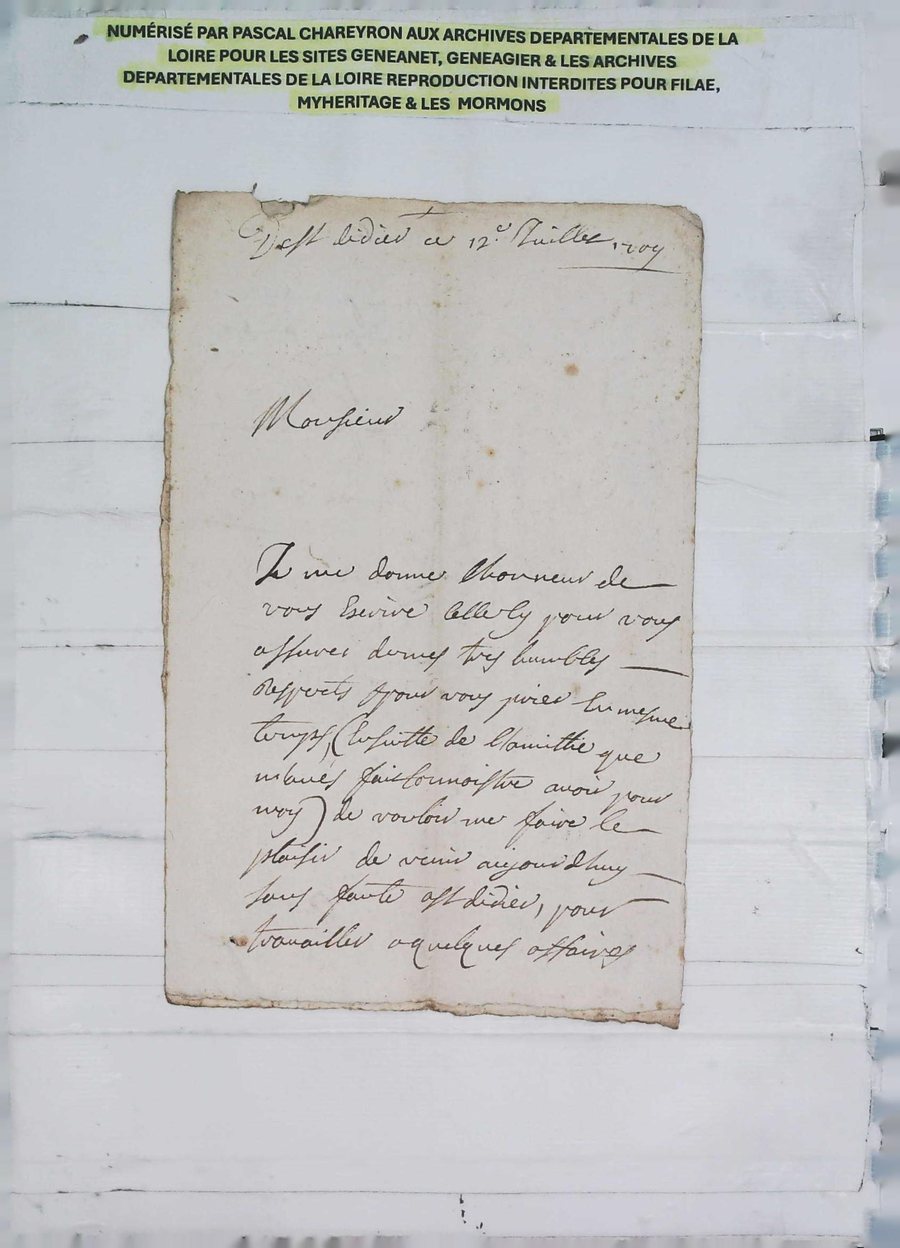 NUMÉRISÉ PAR PASCAL CHAREYRON AUX ARCHIVES DEPARTEMENTALES DE LA
LOIRE POUR LES SITES GENEANET, GENEAGIER & LES ARCHIVES
DEPARTEMENTALES DE LA LOIRE REPRODUCTION INTERDITES POUR FILAE,
MYHERITAGE & LES MORMONS
De st didier ce 12e Juillet 1709
Monsieur
Je me donne lhonneur de
vous Escrire Celle Cy pour vous
assurer de mes tres humbles
Respects & pour vous prier En mesme
temps, (Ensuitte de lamithie que
mavés fait Connoistre avoir pour
moy) de vouloir me faire le
plaisir de venir aujourdhuy
sans faute a st didier, pour
travailler a quelques affaires